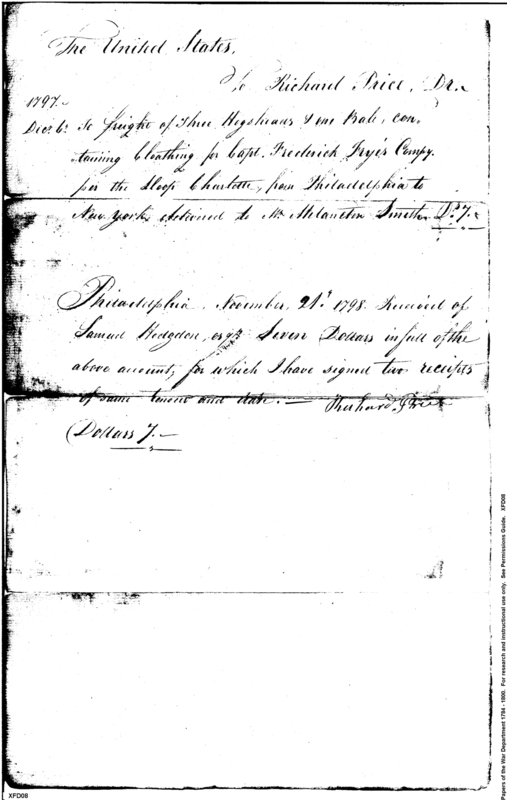 The United States,
To Richard Price, Dr.
1797.
Decr. 6. To freight of Three Hogsheads & one Bale, con-
taining Cloathing for Capt. Frederick Frye's Compy.
per the Sloop Charlotte, from Philadelphia to
New York, delivered to Mr. Melancton Smith Ds. 7.
Philadelphia November, 21st 1798 Received of
Samuel Hodgdon, esqr. Seven Dollars in full of the
above account, for which I have signed two receipts
of same tenor and date. — Richard Price
(Dollars 7.—
XFD08
Papers of the War Department 1784 - 1800. For research and instructional use only. See Permissions Guide. XFD08